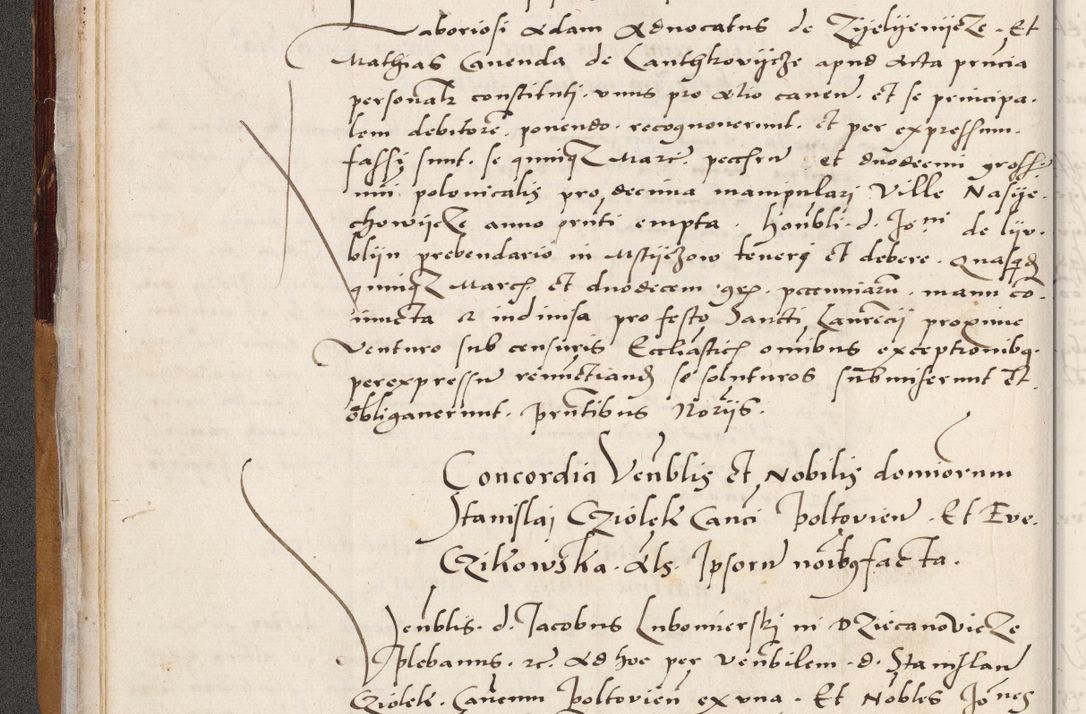 Laboriosi Adam Advocatus de Zyelyenycze Et
Mathias Cauenda de Canthkovycze apud Acta pñcia
personalr constituti unus pro alio cauen et se principa
lem debitore ponendo recognouerunt et per expressum
fassy sunt se quinqz Marc pecch et duodecim gross
nui polonicalis pro decima manipulari Ville Nasye
chowycze anno pñti empta honbli d. Joni de lyv
blyn prebendario in Mstyczow teneri et debere Quasqd
quinqz March et duodecem gr pecuniarū manu cō
iuncta et indiuisa pro festo Sancti Laurēcij proxime
Venturo sub censuris Ecclasticis omibus exceptionibq
per expressu renuctiand se soluturos submiserunt Et
obligauerunt pñtibus Noryis.
Concordia Venblis et Nobilis domiorum
Stanislaj Cziolek Canci poltovien Et Eve
Czikowska als Ipsoru noibq facta.
Venblis d. Jacobus Lubomierskj in Dziecanovicze
plebanus rc Ad hoc per venbilem d. Stanislau
Cziolek Canem poltovien ex una Et Nobles Joneg